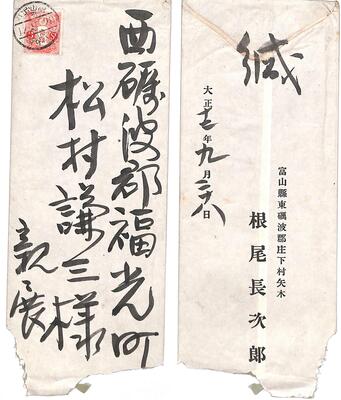 西礪波郡福光町
松村謙三様
親展
緘
富山縣東礪波郡庄下村矢木
根尾長次郎
大正十二年九月二十八日